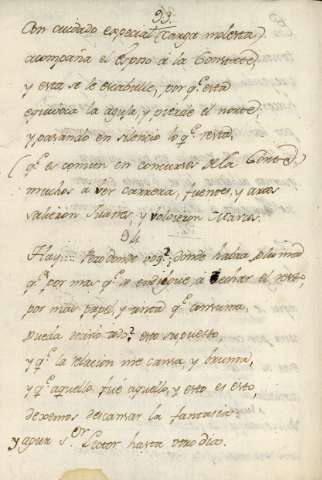 93
Con cuidado especial (carga molesta)
acompaña el esposo a la Consorte
y esta se le escabulle, por q.e está
equivoca la aguja, y pierde el norte,
y pasando en silencio lo q.e resta,
(q.e es comun en concursos de la Corte)
muchos a ver carrera, fuentes, y
salieron Juanes, y volvieron
94
Hay.... Pero donde voy? donde habra pluma
q.e por mas q.e se enrisque a echar el resto,
por mas papel, y tinta q.e consuma
pueda esto supuesto,
y q.e la relacion me cansa, y bruma,
y q.e aquello fué aquello, y esto es esto,
dexemos descansar la fantasia
y agur s.or Lector hasta otro dia.